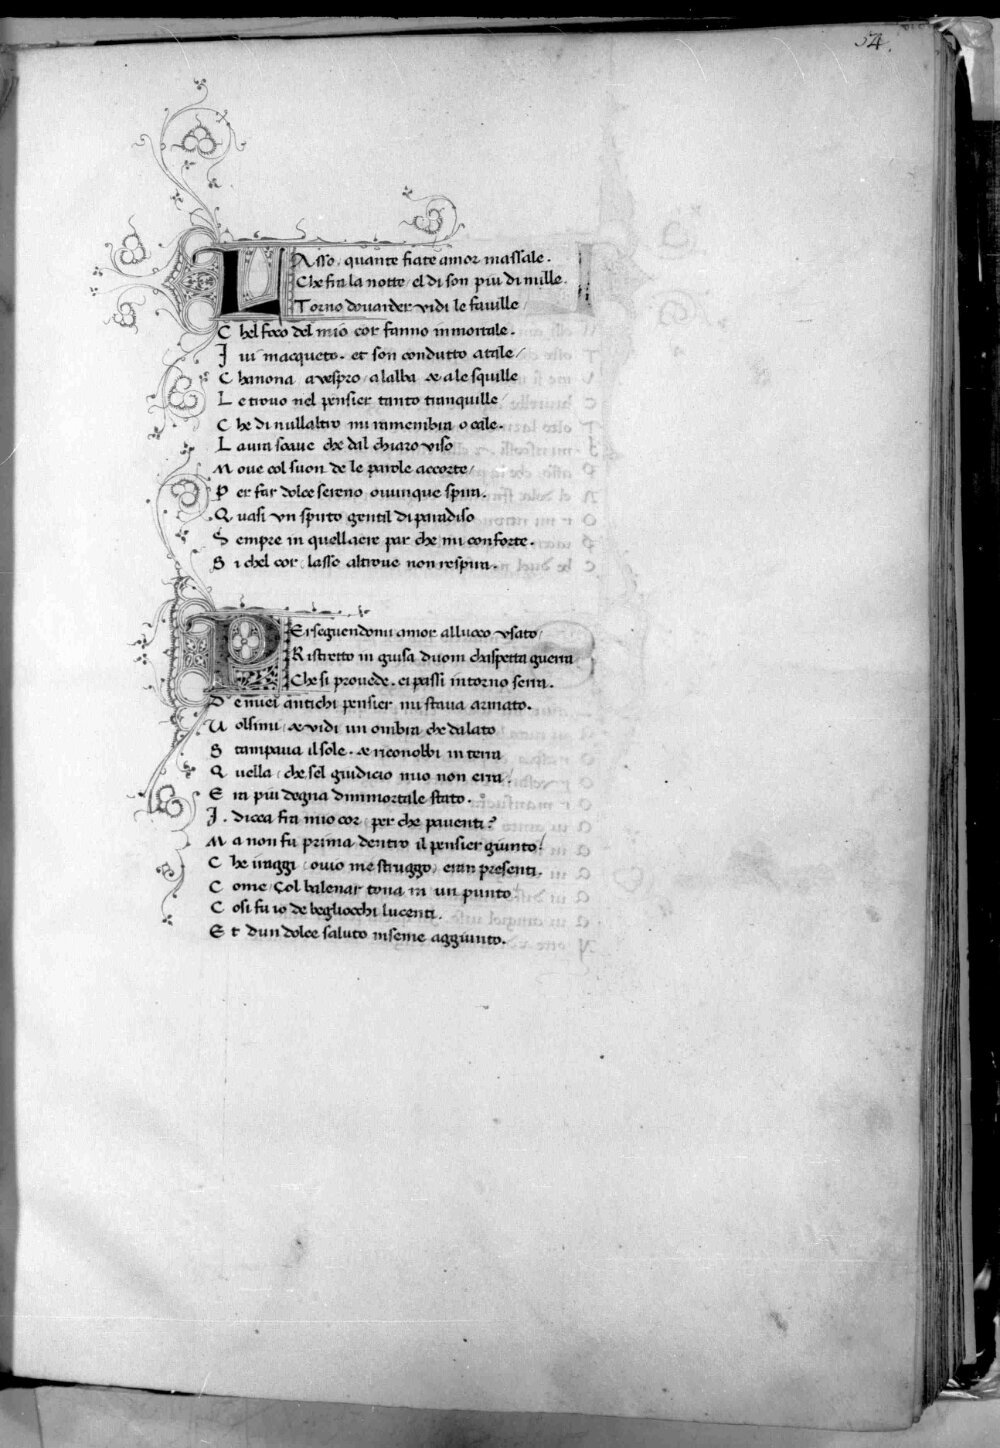 54.
LAsso, quante fiate amor massale.
Che fra la notte, el di son piu di mille.
Torno dovarder vidi le faville,
C hel foco del mio cor fanno inmortale.
J vi macqueto. et son condutto a tale,
C hanona, a vespro, a lalba & a le squille
L e trovo nel pensier tanto tranquille,
C he di nullaltro mi ramembra o cale.
L aura soave che dal chiaro viso
M ove col suon de le parole accorte,
P er far dolce sereno ovunque spira.
Q uasi vn spirto gentil di paradiso
S empre in quellaere par che mi conforte.
S i chel cor, lasso altrove non respira.
PErseguendomi amor alluoco vsato,
Ristretto in guisa duom chaspetta guerra
Che si provede. ei passi intorno serra.
D e miei antichi pensier mi stava armato.
V olsimi, & vidi un ombra che da lato
S tampava il sole. & riconobbi in terra
Q uella, che sel giudicio mio non erra,
E ra piu degna dinmortale stato.
J. dicea fra mio cor, per che paventi?
M a non fu prima dentro il pensier giunto,
C he iraggi, ovio me struggo, eran presenti.
C ome, Col balenar tona in un punto
C osi fu io de begliocchi lucenti.
E t dun dolce saluto inseme aggiunto.